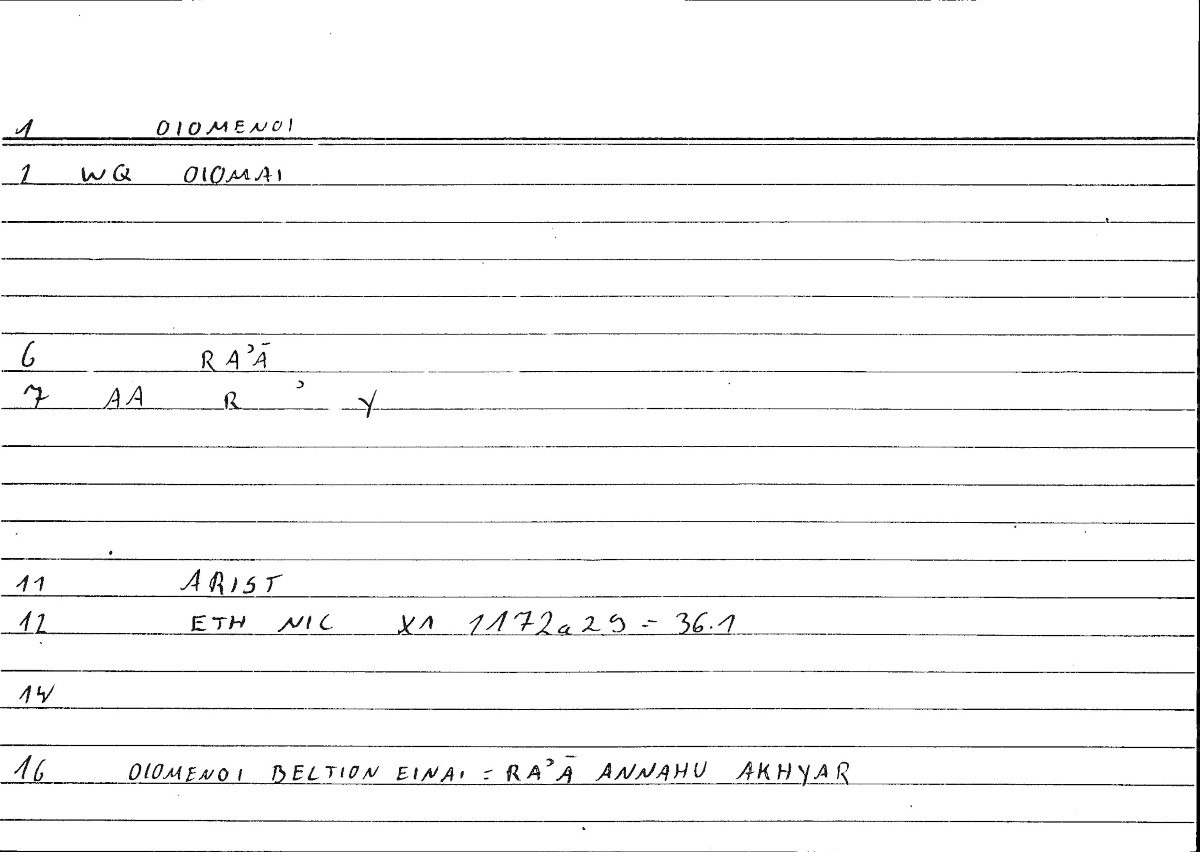 1 OIOMENOI
1 WQ OIOMAI
6 RAʾĀ
7 AA R ʾ Y
11 ARIST
12 ETH NIC X1 1172a29 = 36.1
14
16 OIOMENOI BELTION EINAI = RAʾĀ ANNAHU AKHYAR